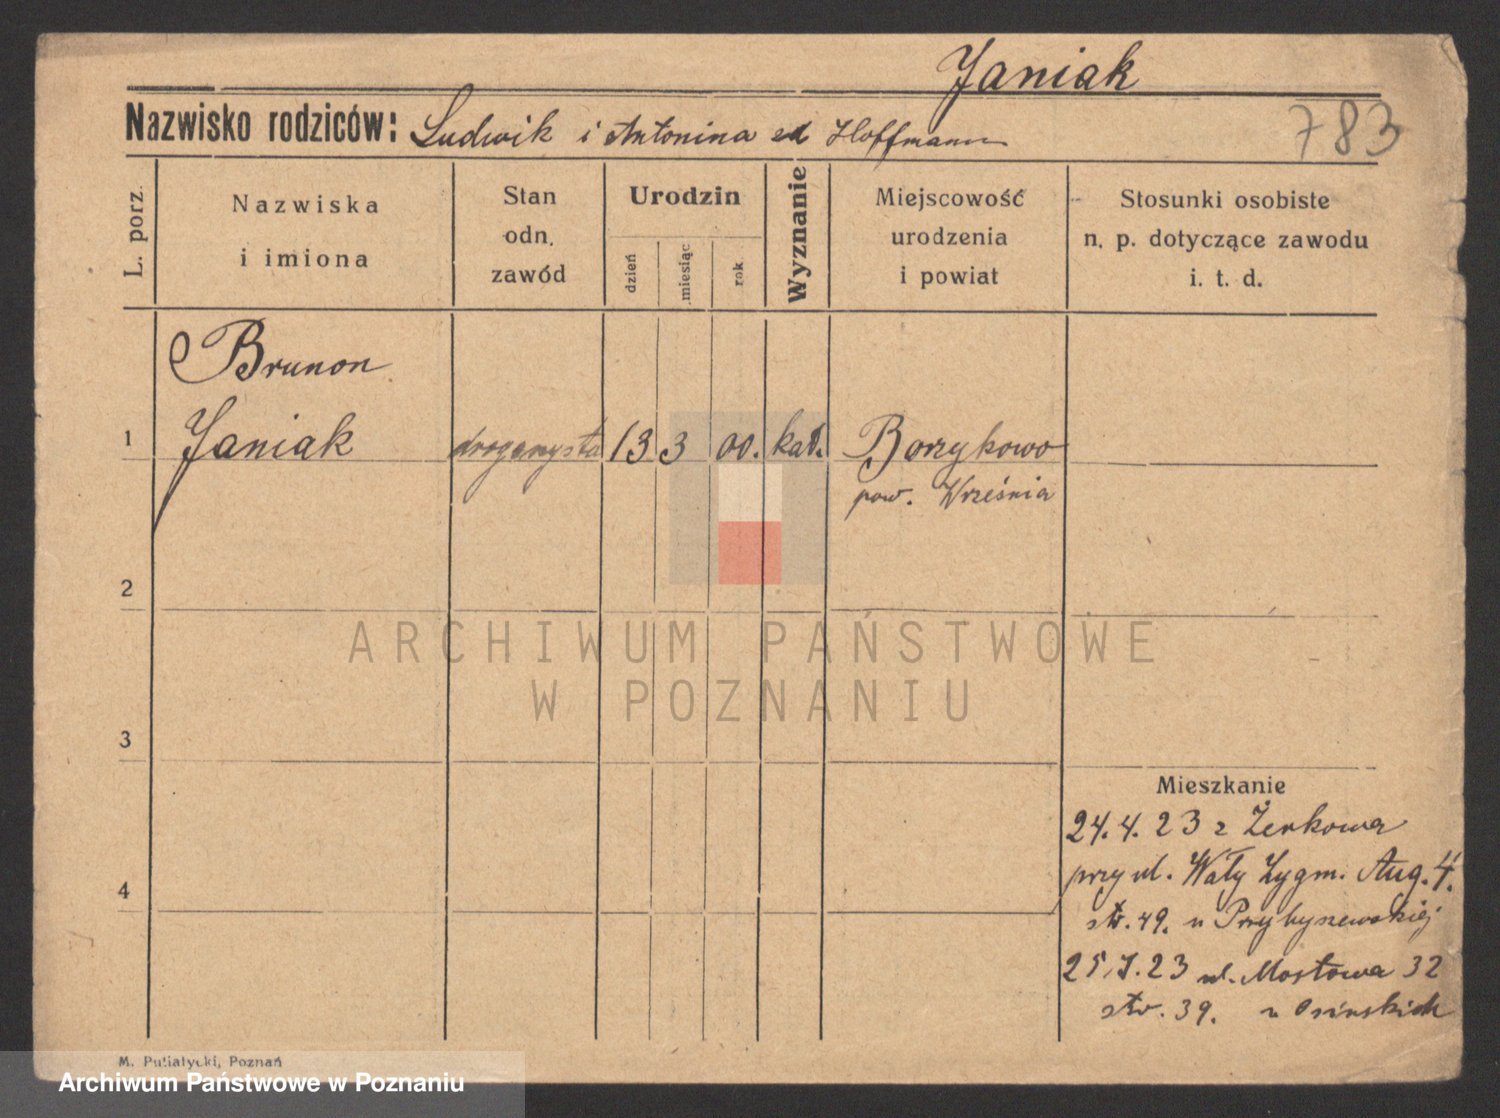 Janiak
Nazwisko rodziców: Ludwik i Antonina zd Hoffmann
783
L. porz.
Nazwiska i imiona
Stan odn. zawód
Urodzin
dzień
miesiąc
rok
Wyznanie
Miejscowość urodzenia i powiat
Stosunki osobiste n. p. dotyczące zawodu i. t. d.
Brunon
1 Janiak drogerzysta 13 3 00. kat. Borzykowo
pow. Września
2
ARCHIWUM PAŃSTWOWE
W POZNANIU
3
Mieszkanie
24.4.23 z Żerkowa
przy ul. Wały Zygm. Aug. 4.
4
str. 49. u Przybyszewskiej
25.7.23 ul. Mostowa 32
str. 39. u Osińskich
M. Putiatycki, Poznań
Archiwum Państwowe w Poznaniu